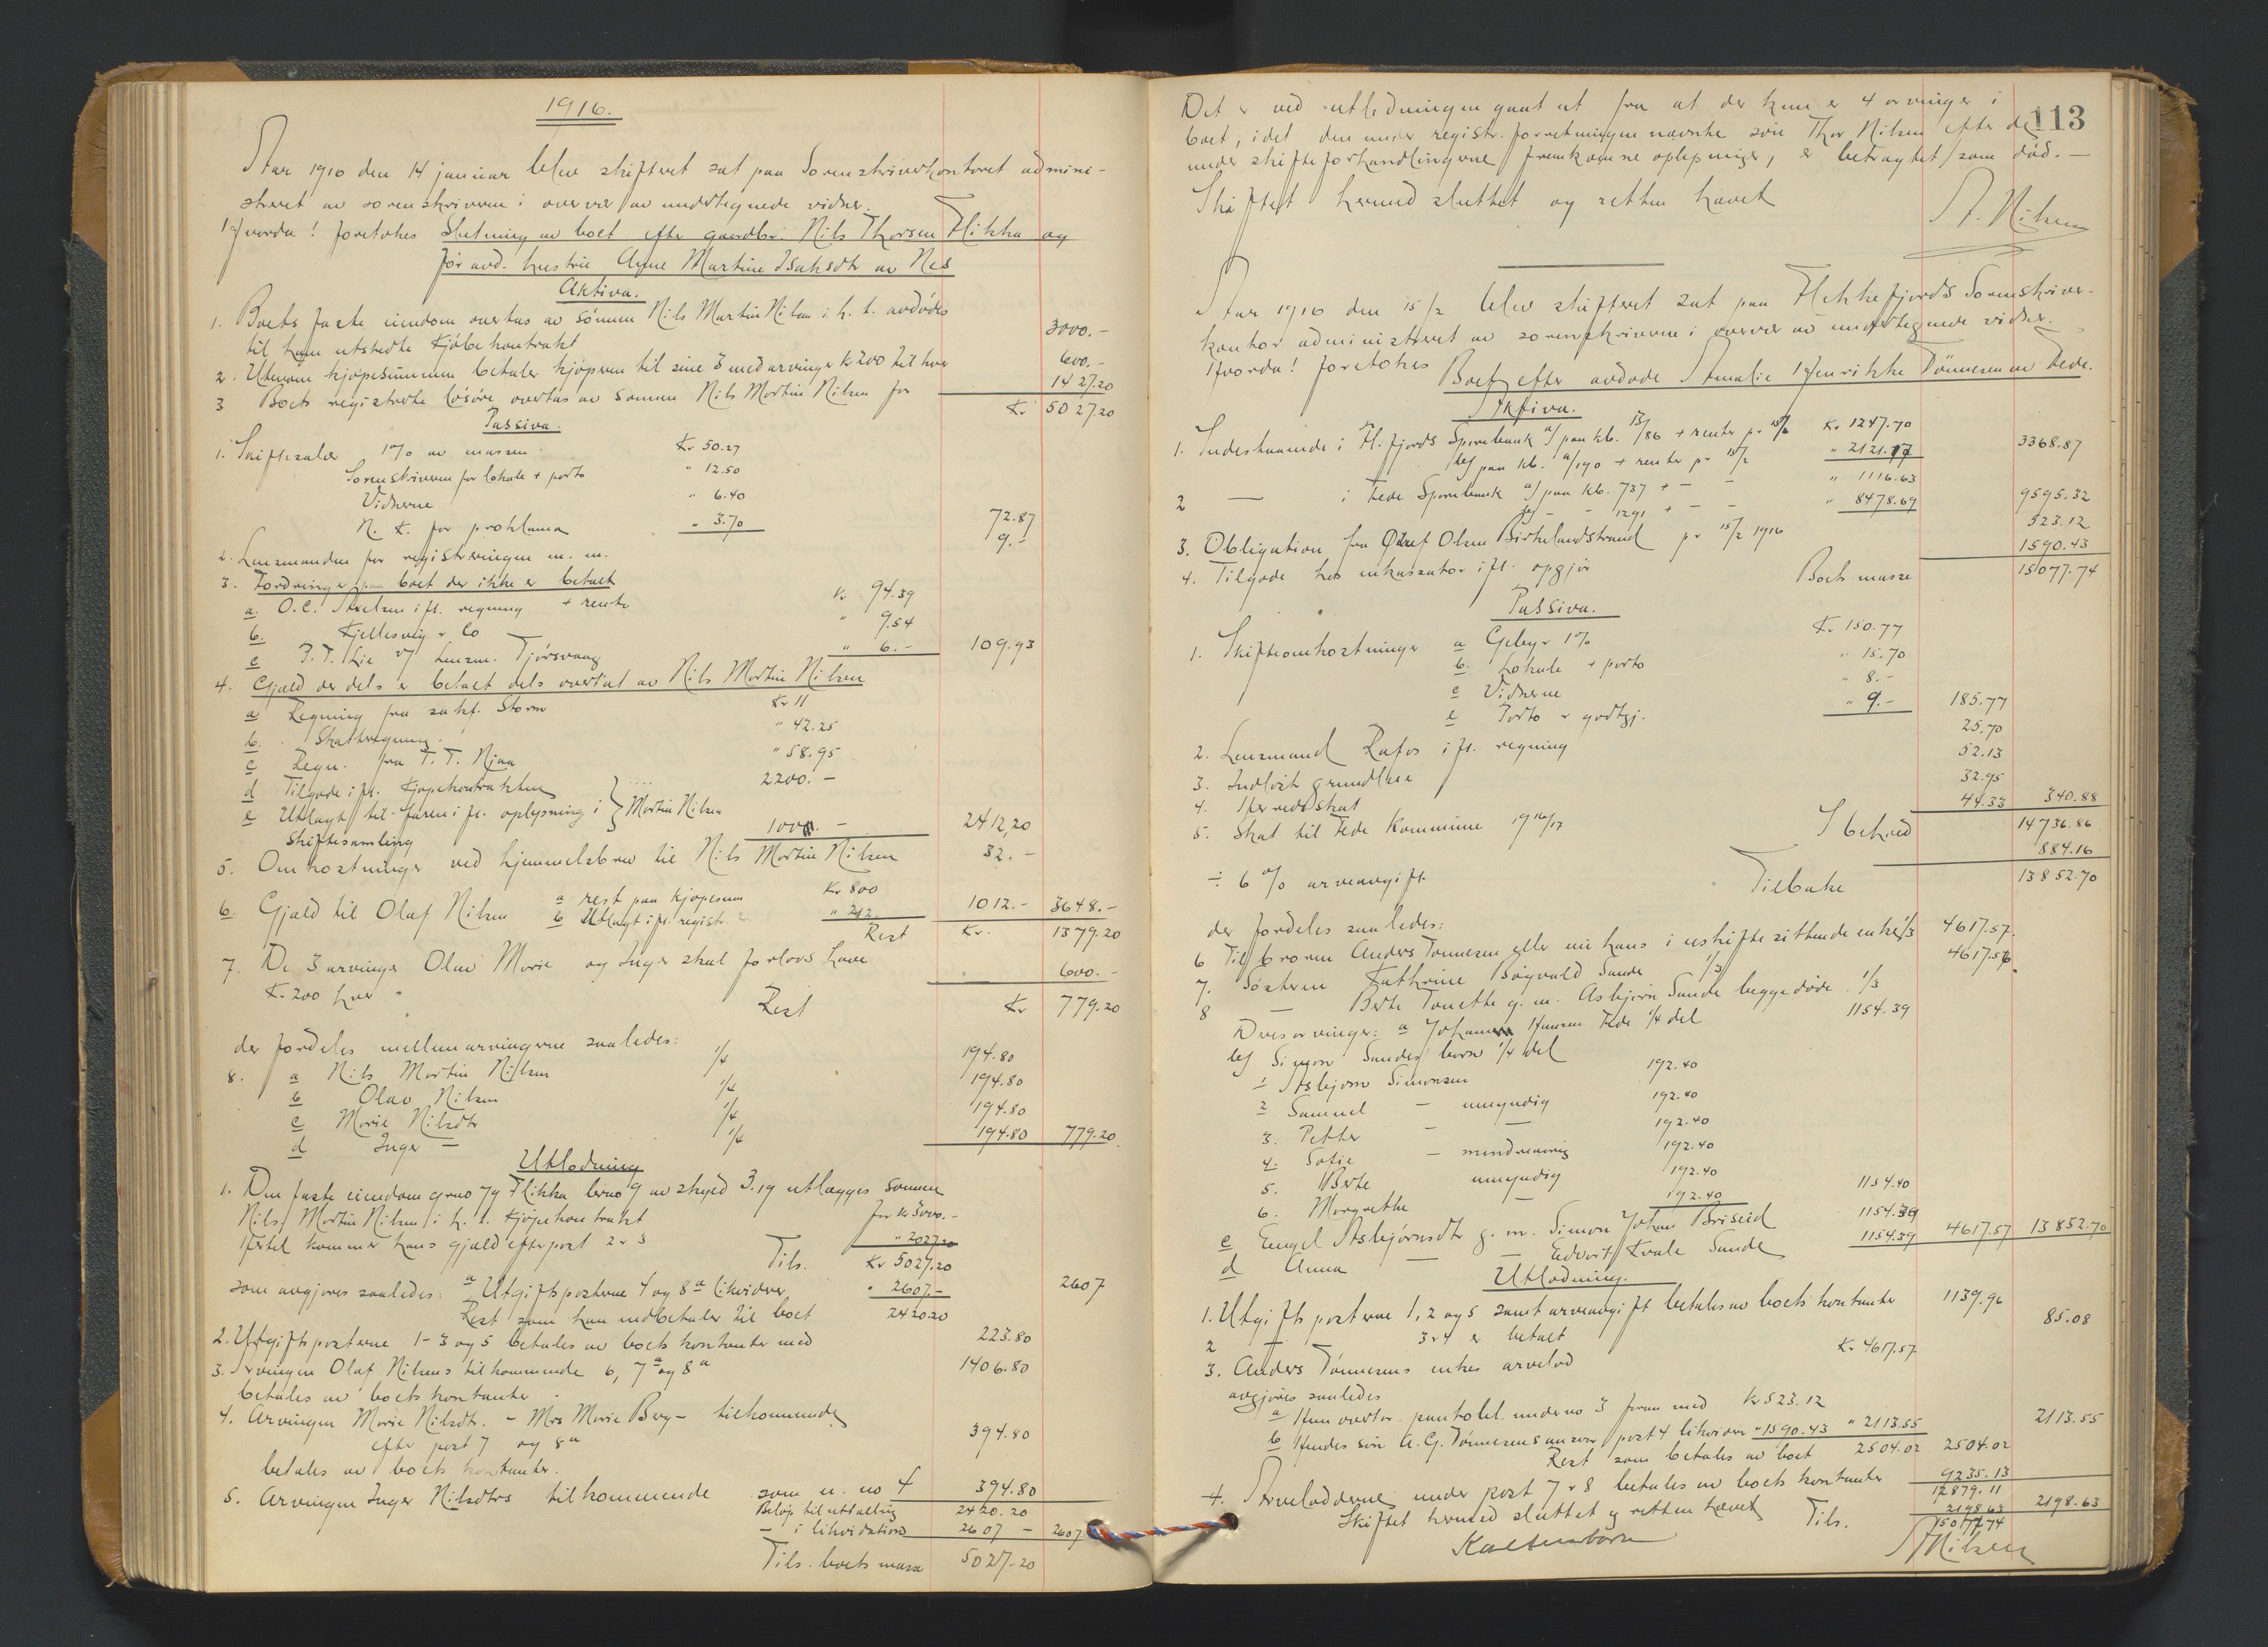 1916.
Aar 1916 den 14 januar blev skifteret sat paa Sorenskriverkontoret admini-
streret av sorenskriveren i overvær av undertegnede vidner.
Hvorda! foretokes Slutning av boet efter gaardbr. Nils Thorsen Flikka og
før avd. hustru Ane Martine Isaksdtr av Nes
Aktiva.
1. Boets faste eiendom overtas av sønnen Nils Martin Nilsen i h. t. avdødes
til ham utstedte Kjøbekontrakt 3000.-
2. Utenom kjøpesummen betaler kjøperen til sine 3 medarvinger kr 200 til hver 600.-
3 Boets registrerte løsøre overtas av sønnen Nils Martin Nilsen for 1427.20
Kr 5027.20
Passiva.
1. Skiftesalær 1% av massen Kr 50.27
Sorenskriveren for lokale + porto " 12.50
Vidnerne " 6.40
N. K. for proklama " 3.70 72.87
2. Lensmanden for registreringen m. m. 9.-
3. Fordringer paa boet der ikke er betalt
a. O. C. Axelsen ifl. regning + rente kr 94.39
b. Kjellesvig & Co " 9.54
c F. T. Lie v/ Lensm. Tjørsvaag " 6.- 109.93
4. Gjæld der dels er betalt dels overtat av Nils Martin Nilsen
a Regning fra sakf. Storm Kr 11
b. Skatteregning. " 42.25
c Regn. fra T. T. Njaa " 58.95
d Tilgode ifl. Kjøpekontrakten 2200.-
e Utlagt til faren i fl. oplysning i } Martin Nilsen
Skiftesamling 100.- 2412,20
5. Omkostninger ved hjemmelsbrev til Nils Martin Nilsen 32.-
6. Gjæld til Olaf Nilsen a rest paa kjøpesum Kr 800
b Utlagt ifl. registr. " 212. 1012.- 3648.-
Rest Kr. 1379.20
7. De 3 arvinger Olav Marie og Inger skal forlods have
Kr 200 hver 600.-
Rest Kr 779.20
der fordeles mellem arvingerne saaledes:
8. a Nils Martin Nilsen 1/4 194.80
b Olav Nilsen 1/4 194.80
c Marie Nilsdtr 1/4 194.80
d Inger — 1/4 194.80 779.20
Utlodning
1. Den faste eiendom grno 79 Flikka brno 9 av skyld 3.19 utlægges sønnen
Nils Martin Nilsen i h. t. Kjøpekontrakt for kr 3000.-
Hertil kommer hans gjæld efter post 2 & 3 " 2027.20
Tils. Kr 5027.20
som avgjøres saaledes: a Utgiftsposterne 4 og 8a likvideres " 2607.- 2607
Rest som han indbetaler til boet 2420.20
2. Utgiftsposterne 1-3 og 5 betales av boets kontanter med 223.80
3. Arvingen Olaf Nilsens tilkommende 6, 7a og 8a
betales av boets kontanter 1406.80
4. Arvingen Marie Nilsdtr. - Mrs Marie Berg - tilkommende
efter post 7 og 8a 394.80
betales av boets kontanter.
5. Arvingen Inger Nilsdtrs tilkommende som u. no 4 394.80
Beløp til utbetaling 2420.20
— i likvidation 2607 - 2607
Tils. boets masse 5027.20
113
Det er ved utlodningen gaat ut fra at der kun er 4 arvinger i
boet, idet den under registr. forretningen nævnte søn Thor Nilsen efter de
under skifteforhandlingerne fremkomne oplysninger, er betragtet som død. —
Skiftet hermed sluttet og retten hævet
A. Nilsen
Aar 1916 den 15/2 blev skifteret sat paa Flekkefjords Sorenskriver-
kontor administreret av sorenskriveren i overvær av undertegnede vidner.
Hvorda! foretokes
Boet efter avdøde Amalie Henrikke Tønnesen av Fede.
Aktiva.
1. Indestaaende i Fl. fjords Sparebank a/ paa kb. 13/86 + renter pr 15/2 Kr 1247.70
b/ paa kb. a/190 + renter pr 15/2 " 2121.17 3368.87
2 — i Fede Sparebank a/ paa kb. 737 + — — " 1116.63
b/ - - 1291 + — — " 8478.69 9595.32
3. Obligation fra Olaf Olsen Birkelandstrand pr 15/2 1916 523.12
4. Tilgode hos inkassator ifl. opgjør 1590.43
Boets masse 15077.74
Passiva.
1. Skifteomkostninger a Gebyr 1% Kr 150.77
b. Lokale + porto " 15.70
c Vidnerne " 8.-
e Porto & godtgj. " 9.- 185.77
2. Lensmand Rafos ifl. regning 25.70
3. Indløst grundleie 52.13
4. Herredsskat 32.95
5. Skat til Fede Kommune 1916/17 44.33 340.88
I behold 14736.86
÷ 6 % arveavgift 884.16
Tilbake 13852.70
der fordeles saaledes:
6 Til broren Anders Tønnesen eller nu hans i uskifte sittende enke 1/3 4617.57
7. Søsteren Kathrine Sigvald Sande 1/3 4617.56
8 — Berte Tonette g. m. Asbjørn Sande begge døde 1/3
Deres arvinger: a Johanna Hansen Fede 1/4 del 1154.39
b/ Simon Sandes børn 1/4 del
1 Asbjørn Simonsen 192.40
2 Samuel — umyndig 192.40
3. Petter — — 192.40
4. Sofie — mindreaarig 192.40
5. Berte umyndig 192.40
6. Margrethe — 192.40 1154.40
c Engel Asbjørnsdtr g. m. Simon Johan Briseid 1154.39
d Anna — — Edvart Kvale Sande 1154.39 4617.57 13852.70
Utlodning.
1. Utgiftsposterne 1, 2 og 5 samt arveavgift betales av boets kontanter 1139.96
2 — 3 & 4 er betalt 85.08
3. Anders Tønnesens enkes arvelod Kr 4617.57
avgjøres saaledes
a Hun overtar pantobl. under no 3 foran med Kr 523.12
b Hendes søn A. G. Tønnesens ansvar post 4 likvideres " 1590.43 " 2113.55 2113.55
Rest som betales av boet 2504.02 2504.02
4. Arveloddernes under post 7 & 8 betales av boets kontanter 9235.13
12879.11
2198.63 2198.63
Skiftet hermed sluttet og retten hævet Tils. 15077.74
A Nilsen